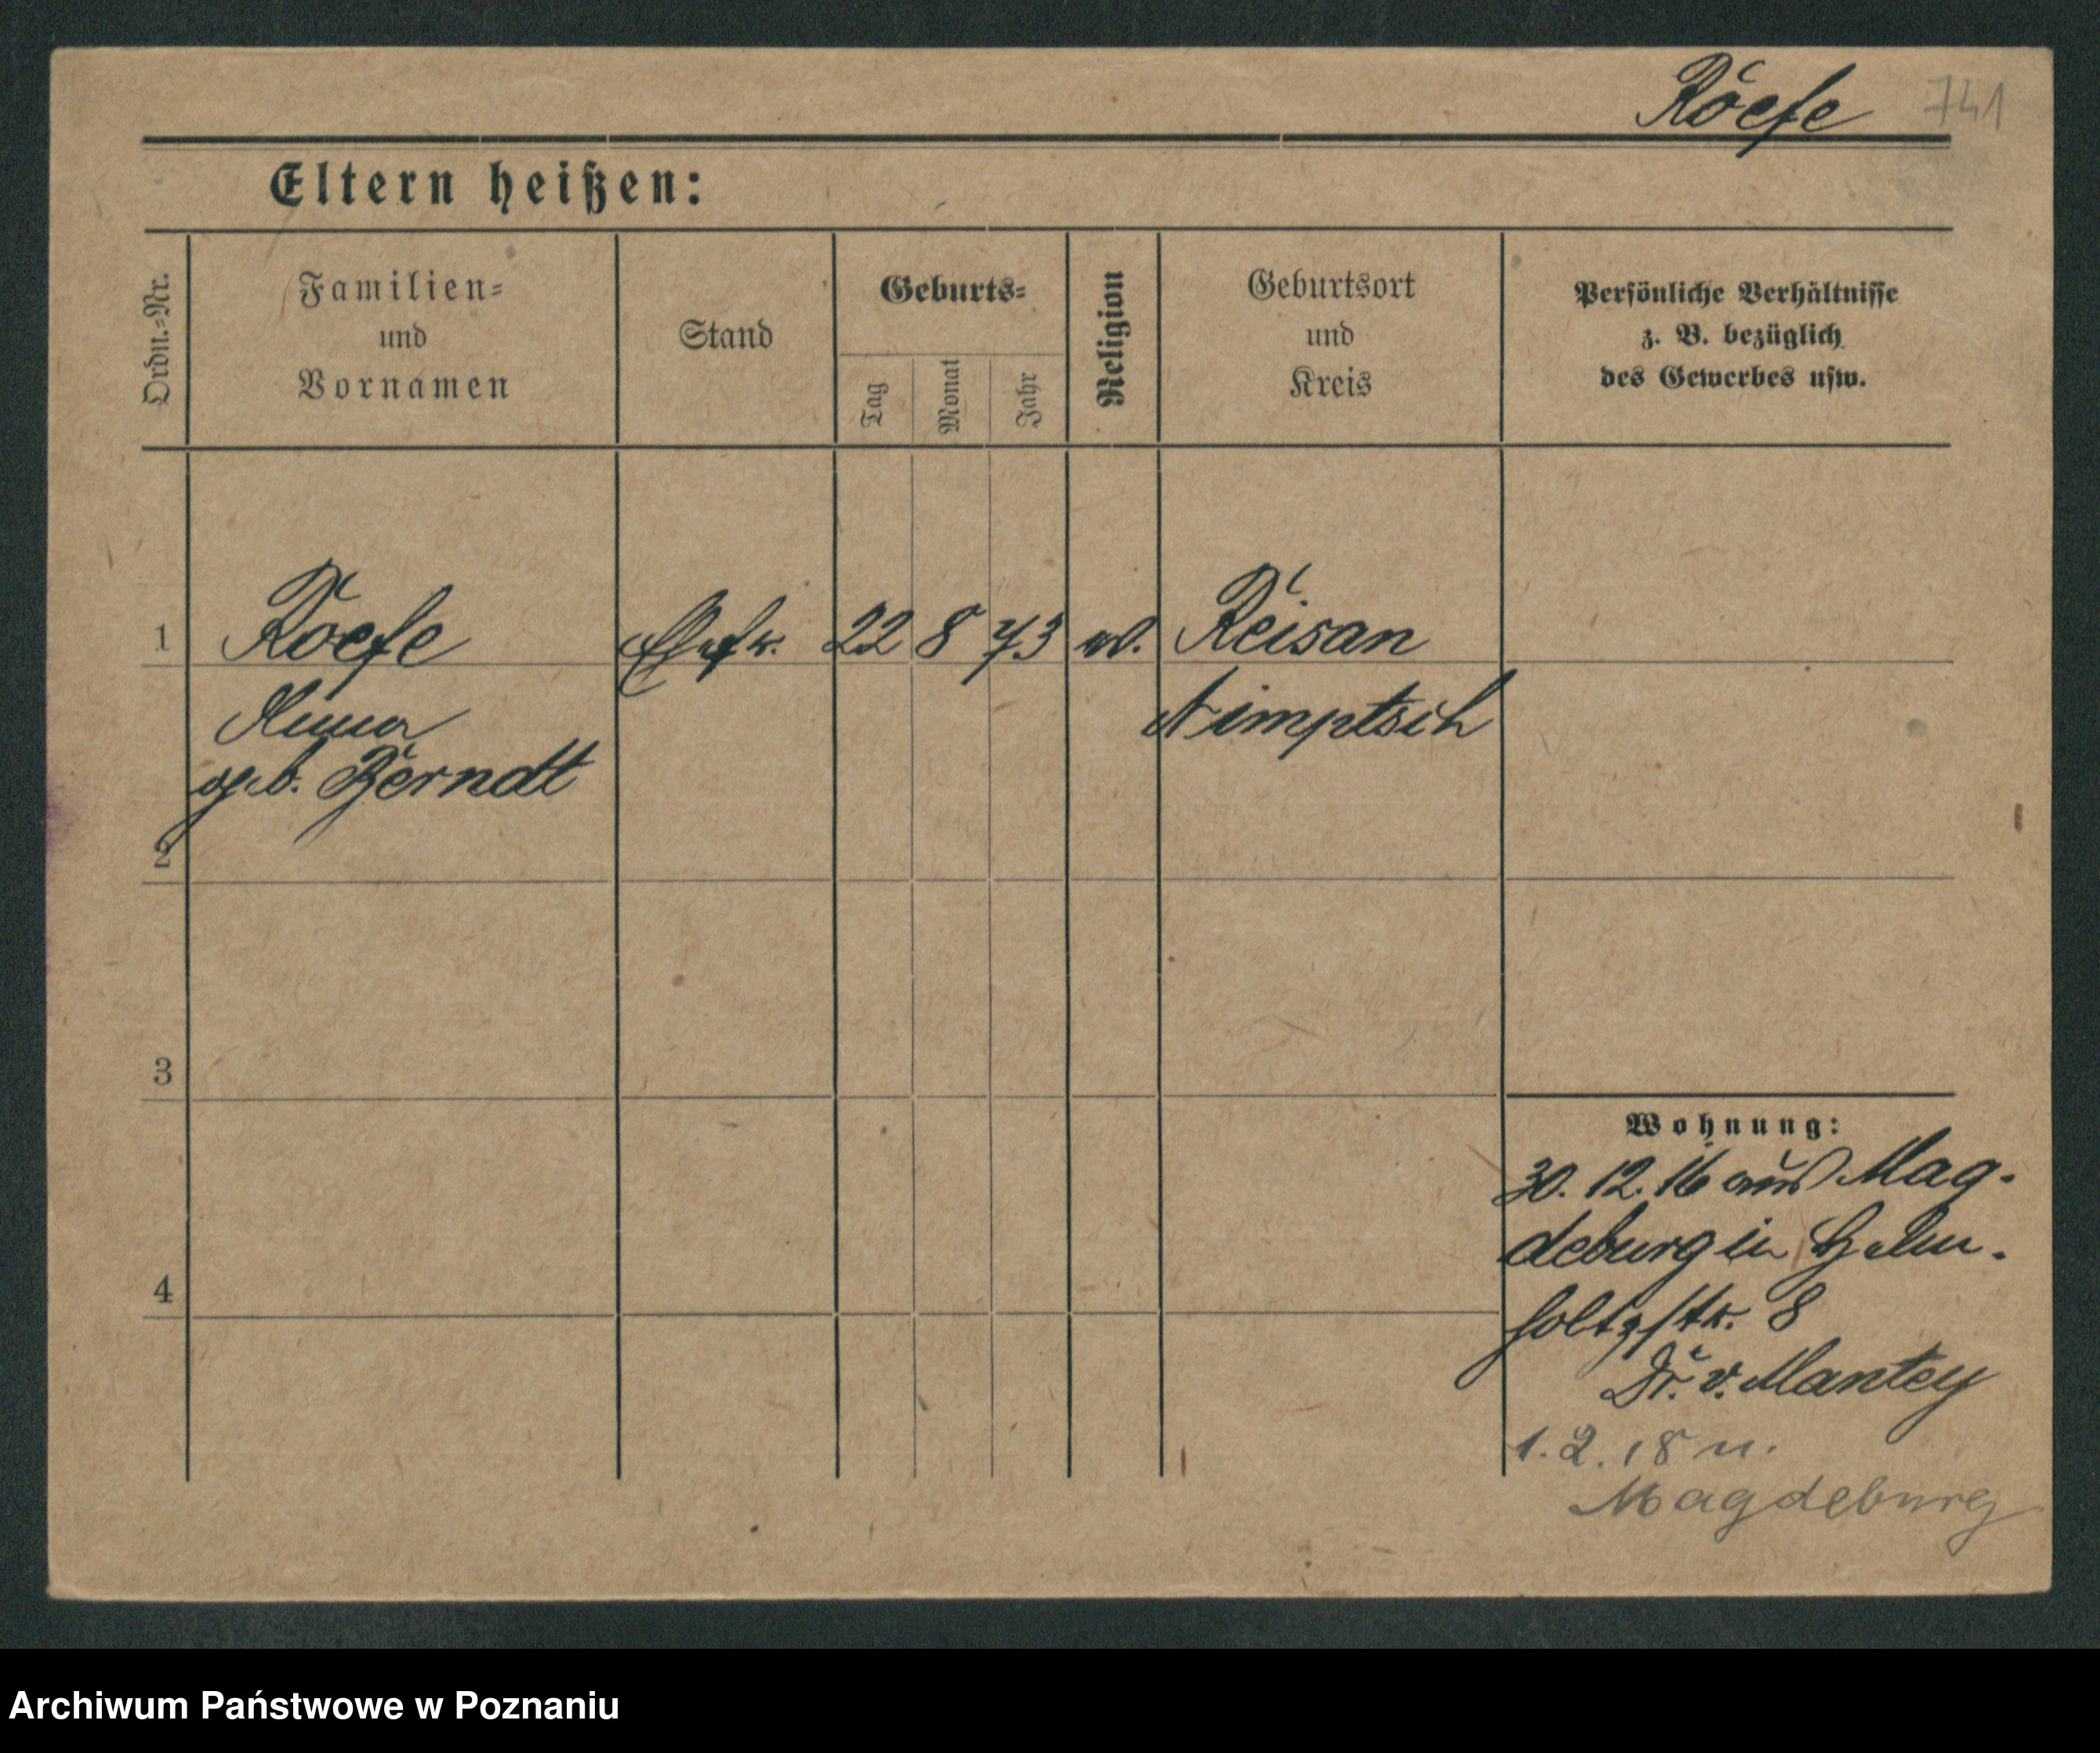 Roefe 741
Eltern heißen:
Ordn.-Nr.
Familien-
und
Vornamen
Stand
Geburts-
Tag
Monat
Jahr
Religion
Geburtsort
und
Kreis
Persönliche Verhältnisse
z. B. bezüglich
des Gewerbes usw.
1 Roefe Ehefr. 22 8 73 Reisau
Anna Nimptsch
geb. Berndt
2
3
4
Wohnung:
30. 12. 16 aus Mag-
deburg in Helm-
holtzstr. 8
Dr. v. Mantey
1. 2. 18 n.
Magdeburg
Archiwum Państwowe w Poznaniu